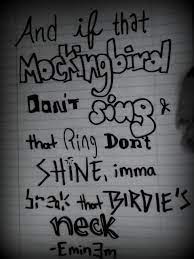 And if that
Mockingbird
Don't sing &
that Ring Dont
SHINE, imma
break that BIRDIE'S
neck
-Eminem